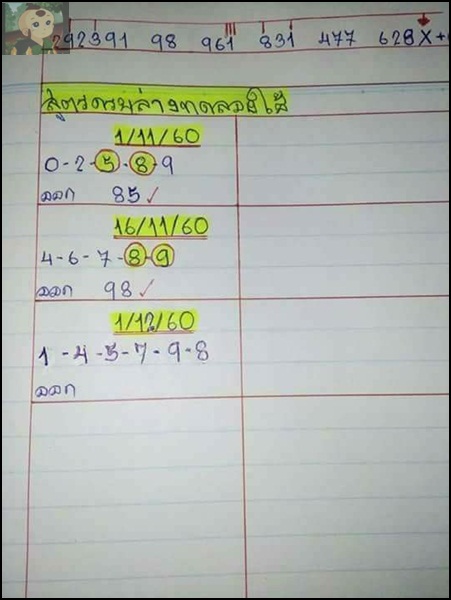 292391 98 961 831 477 628X+
สูตรรวมล่าง
1/11/60
0-2-5-8-9
ออก 85 ✓
16/11/60
4-6-7-8-9
ออก 98 ✓
1/12/60
1-4-5-7-9-8
ออก